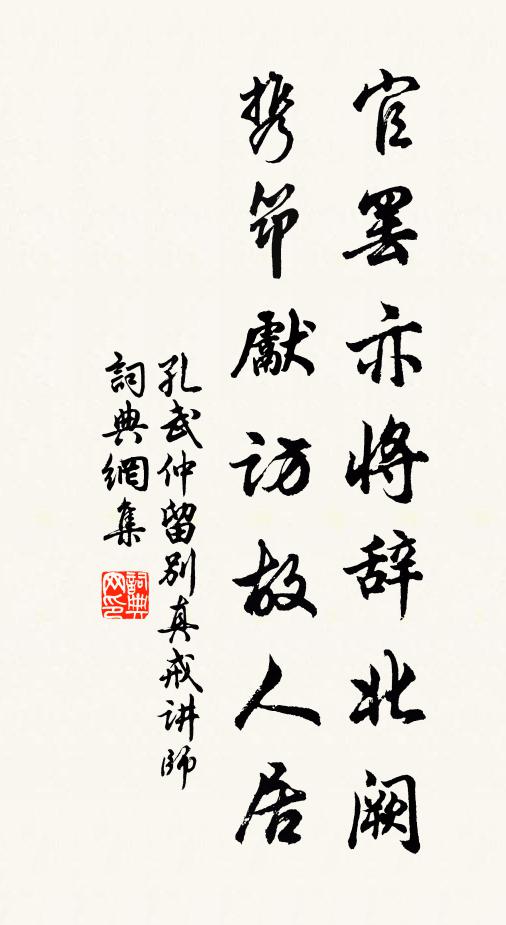 官罢亦将辞北阙
携筇獻访故人居
孔武仲留别真戒讲師
詞典網集
詞典网印